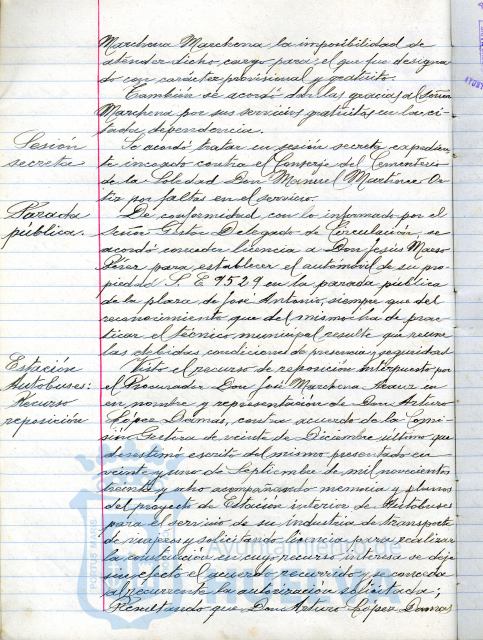 Marchena Marchena la imposibilidad de
atender dicho cargo para el que fue designa-
do con carácter provisional y gratuito.
También se acordó dar las gracias al señor
Marchena por sus servicios gratuitos en la ci-
tada dependencia.
Sesión
secreta
Se acordó tratar en sesión secreta expedien-
te incoado contra el Conserje del Cementerio
de la Soledad Don Manuel Martínez Or-
tiz por faltas en el servicio.
Parada
pública.
De conformidad con lo informado por el
señor Gestor Delegado de Circulación, se
acordó conceder licencia a Don Jesús Maeso
Pérez para establecer el automóvil de su pro-
piedad S.E 9529 en la parada pública
de la plaza de José Antonio, siempre que del
reconocimiento que del mismo ha de prac-
ticar el técnico municipal resulte que reune
las debidas condiciones de presencia y seguridad.
Estación
Autobuses:
Recurso
reposición
Visto el recurso de reposición interpuesto por
el Procurador Don José Marchena en
en nombre y representación de Don Arturo
López Damas, contra acuerdo de la Comi-
sión Gestora de veinte de Diciembre último que
desestimó escrito del mismo presentado en
veinte y uno de Septiembre de mil novecientos
treinta y ocho acompañando memoria y planos
del proyecto de Estación interior de Autobuses
para el servicio de su industria de transporte
de viajeros y solicitando licencia para realizar
la construcción en cuyo recurso interesa se deje
sin efecto el acuerdo recurrido y se conceda
al recurrente la autorización solicitada;
Resultando que Don Arturo López Damas
PORTUS MARIS
Ayuntamiento de